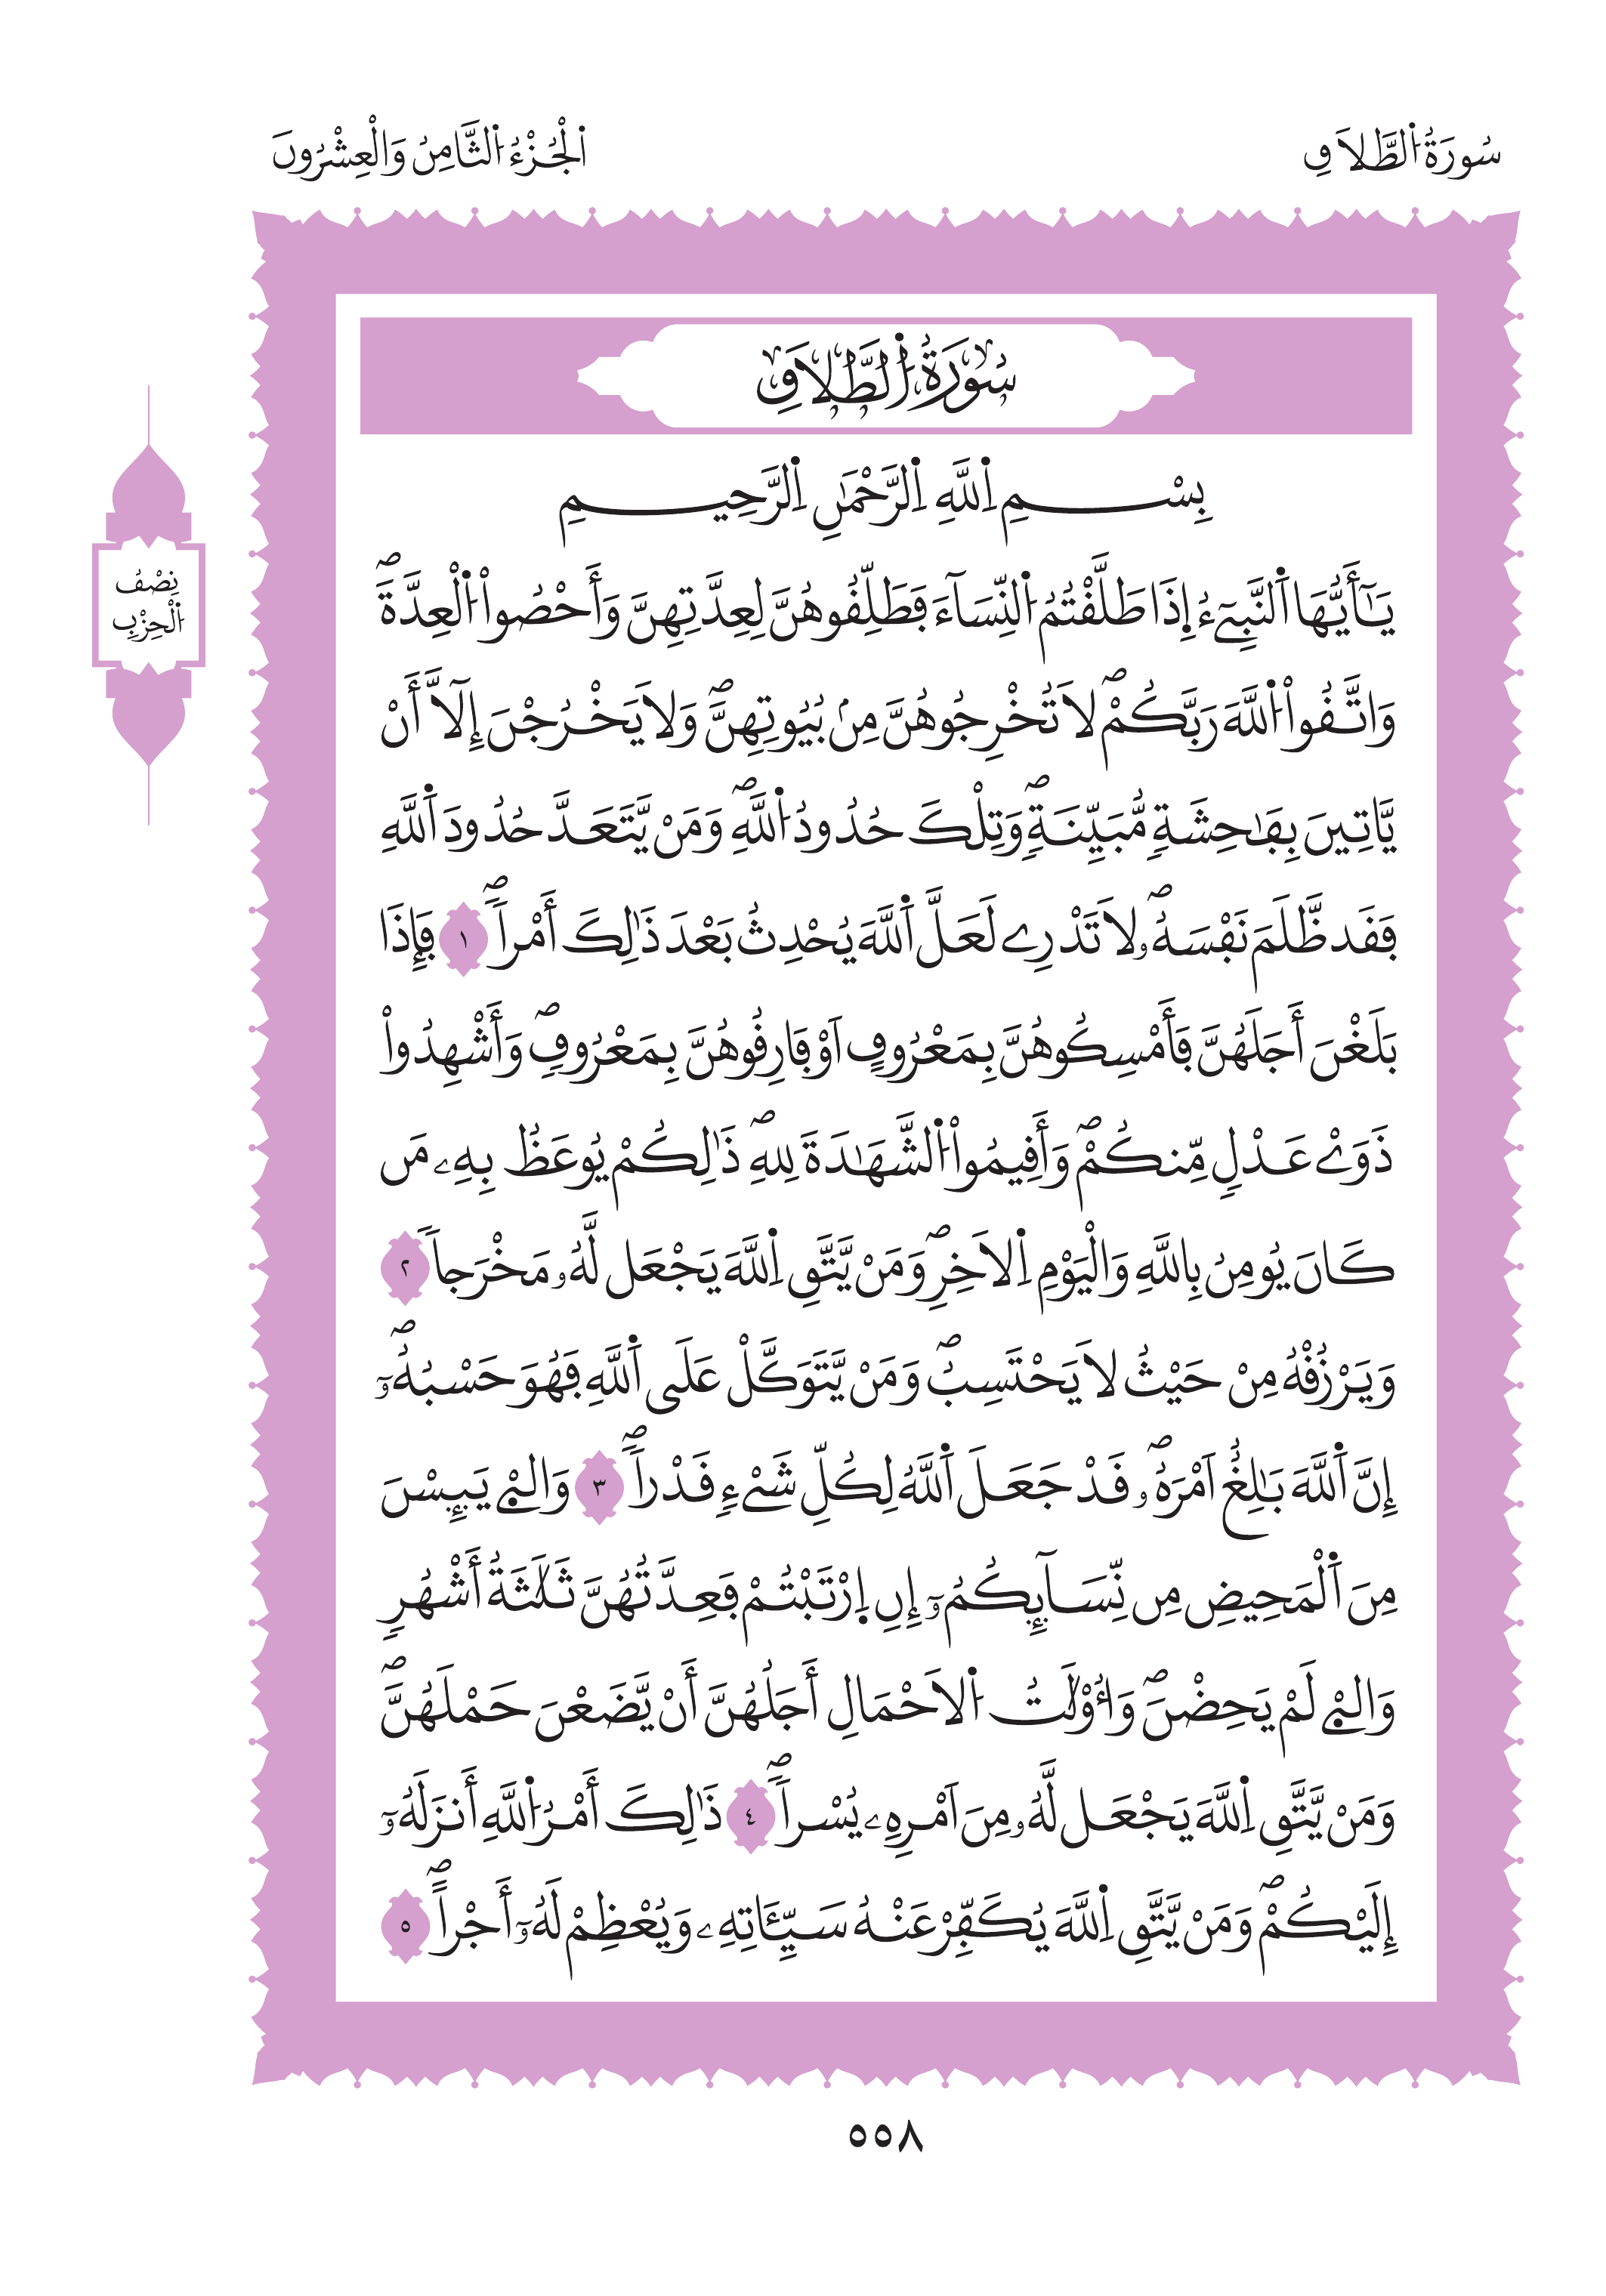 سُورَةُ اُ۬لطَّلَاقِ
اَ۬لْجُزْءُ اُ۬لثَّامِنُ وَالْعِشْرُونَ
نِصْفُ
اُ۬لْحِزْبِ
سُورَةُ اُ۬لطَّلَاقِ
بِسْمِ اِ۬للَّهِ اِ۬لرَّحْمَٰنِ اِ۬لرَّحِيمِ
يَٰٓأَيُّهَا اَ۬لنَّبِےٓءُ إِذَا طَلَّقْتُمُ اُ۬لنِّسَآءَ فَطَلِّقُوهُنَّ لِعِدَّتِهِنَّ وَأَحْصُواْ اُ۬لْعِدَّةَۖ
وَاتَّقُواْ اُ۬للَّهَ رَبَّكُمْۖ لَا تُخْرِجُوهُنَّ مِنۢ بُيُوتِهِنَّۖ وَلَا يَخْرُجْنَ إِلَّآ أَنْ
يَّاتِينَ بِفَٰحِشَةٖ مُّبَيِّنَةٖۖ وَتِلْكَ حُدُودُ اُ۬للَّهِۖ وَمَنْ يَّتَعَدَّ حُدُودَ اَ۬للَّهِ
فَقَد ظَّلَمَ نَفْسَهُۥۖ لَا تَدْرِے لَعَلَّ اَ۬للَّهَ يُحْدِثُ بَعْدَ ذَٰلِكَ أَمْراٗۖ ١ فَإِذَا
بَلَغْنَ أَجَلَهُنَّ فَأَمْسِكُوهُنَّ بِمَعْرُوفٍ اَوْ فَارِقُوهُنَّ بِمَعْرُوفٖۖ وَأَشْهِدُواْ
ذَوَےْ عَدْلٖ مِّنكُمْۖ وَأَقِيمُواْ اُ۬لشَّهَٰدَةَ لِلهِۖ ذَٰلِكُمْ يُوعَظُ بِهِۦ مَن
كَانَ يُومِنُ بِاللَّهِ وَالْيَوْمِ اِ۬لَاخِرِۖ وَمَنْ يَّتَّقِ اِ۬للَّهَ يَجْعَل لَّهُۥ مَخْرَجاٗ ٢
وَيَرْزُقْهُ مِنْ حَيْثُ لَا يَحْتَسِبُۖ وَمَنْ يَّتَوَكَّلْ عَلَى اَ۬للَّهِ فَهُوَ حَسْبُهُۥٓۖ
إِنَّ اَ۬للَّهَ بَٰلِغٌ اَمْرَهُۥۖ قَدْ جَعَلَ اَ۬للَّهُ لِكُلِّ شَےْءٖ قَدْراٗۖ ٣ وَالَٰٓـِٔے يَئِسْنَ
مِنَ اَ۬لْمَحِيضِ مِن نِّسَآئِكُمُۥٓ إِنِ اِ۪رْتَبْتُمْ فَعِدَّتُهُنَّ ثَلَٰثَةُ أَشْهُرٖ
وَالَٰٓـِٔے لَمْ يَحِضْنَۖ وَأُوْلَٰتُ اُ۬لَاحْمَالِ أَجَلُهُنَّ أَنْ يَّضَعْنَ حَمْلَهُنَّۖ
وَمَنْ يَّتَّقِ اِ۬للَّهَ يَجْعَل لَّهُۥ مِنَ اَمْرِهِۦ يُسْراٗۖ ٤ ذَٰلِكَ أَمْرُ اُ۬للَّهِ أَنزَلَهُۥٓ
إِلَيْكُمْۖ وَمَنْ يَّتَّقِ اِ۬للَّهَ يُكَفِّرْ عَنْهُ سَيِّـَٔاتِهِۦ وَيُعْظِمْ لَهُۥٓ أَجْراًۖ ٥
٥٥٨